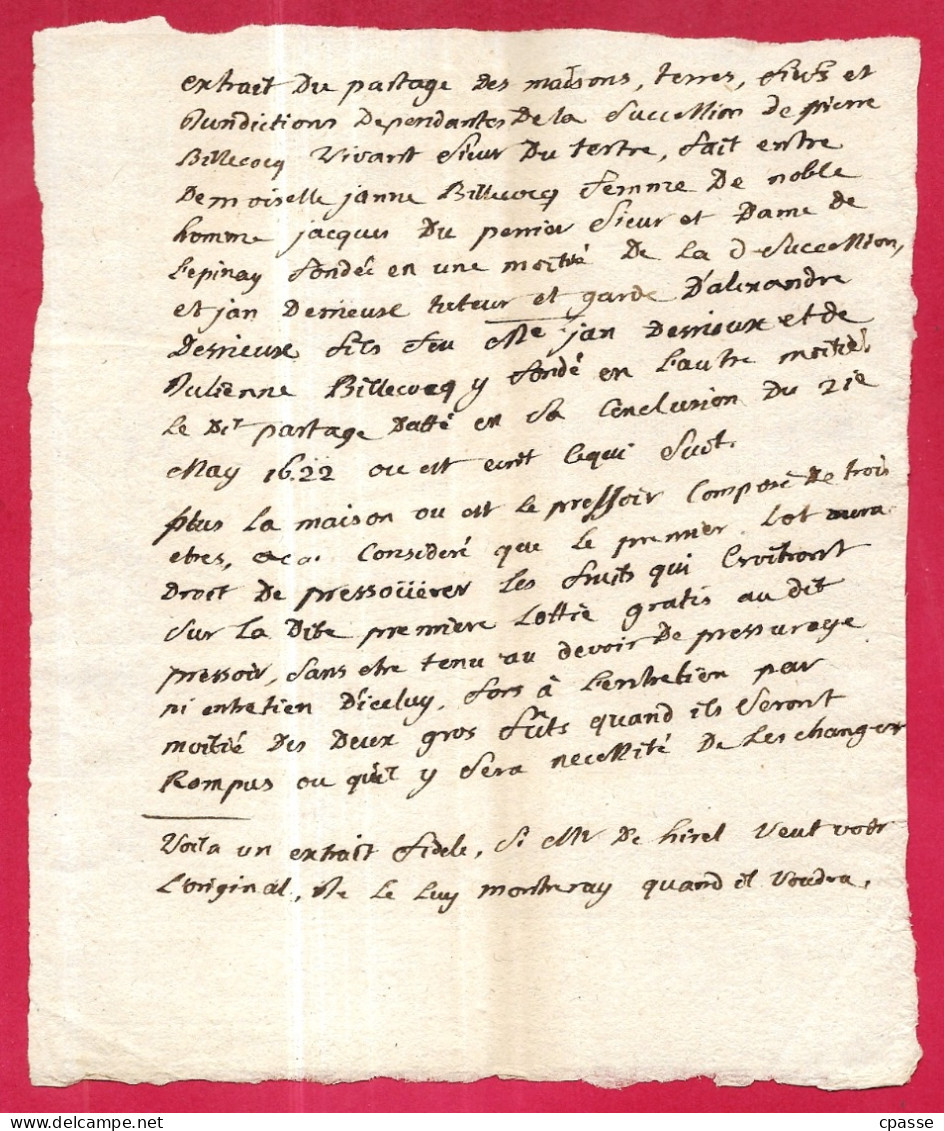 extrait Du partage Des maisons, terres, fiefs et
Jurisdictions Dependantes De la Succession de pierre
Billecocq Vivant Sieur Du tertre, fait entre
Demoiselle janne Billecocq femme De noble
homme jacques Du perrier Sieur et Dame de
L'epinay fondée en une moitié De La d Succession,
et jan Derrieuxe tuteur et garde D'alexandre
Derrieuxe fils feu Me jan Derrieuxe et de
Julienne Billecocq y fondé en L'autre moitié
Le Dit partage Datté en Sa Conclusion Du 21e
May 1622 ou est ecrit Ce qui Suit.
plus La maison ou est Le pressoir Composé De trois
etres, &ca. Consideré que Le premier Lot aura
Droit De pressoüerer Les fruits qui Croitront
Sur La Dite premiere Lottie gratis au dit
pressoir, Sans etre tenu au devoir De pressurage
ni entretien D'iceluy, fors à L'entretien par
moitié Des Deux gros fûts quand ils Seront
Rompus ou qu'il y Sera necessité De Les changer
Voila un extrait fidele, Si Mr De hirel Veut voir
L'original, Je Le Luy montreray quand il Voudra.
cpasse